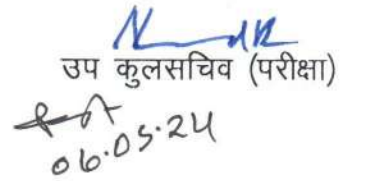 उप कुलसचिव (परीक्षा)
06.05.24